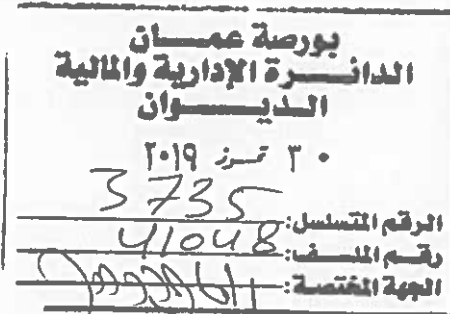 بورصة عمـــان
الدائـــرة الإدارية والمالية
الديـــوان
٣٠ تمـوز ٢٠١٩
الرقم المتسلسل: 3735
رقـم الملـــف: 41048
الجهة المختصة: